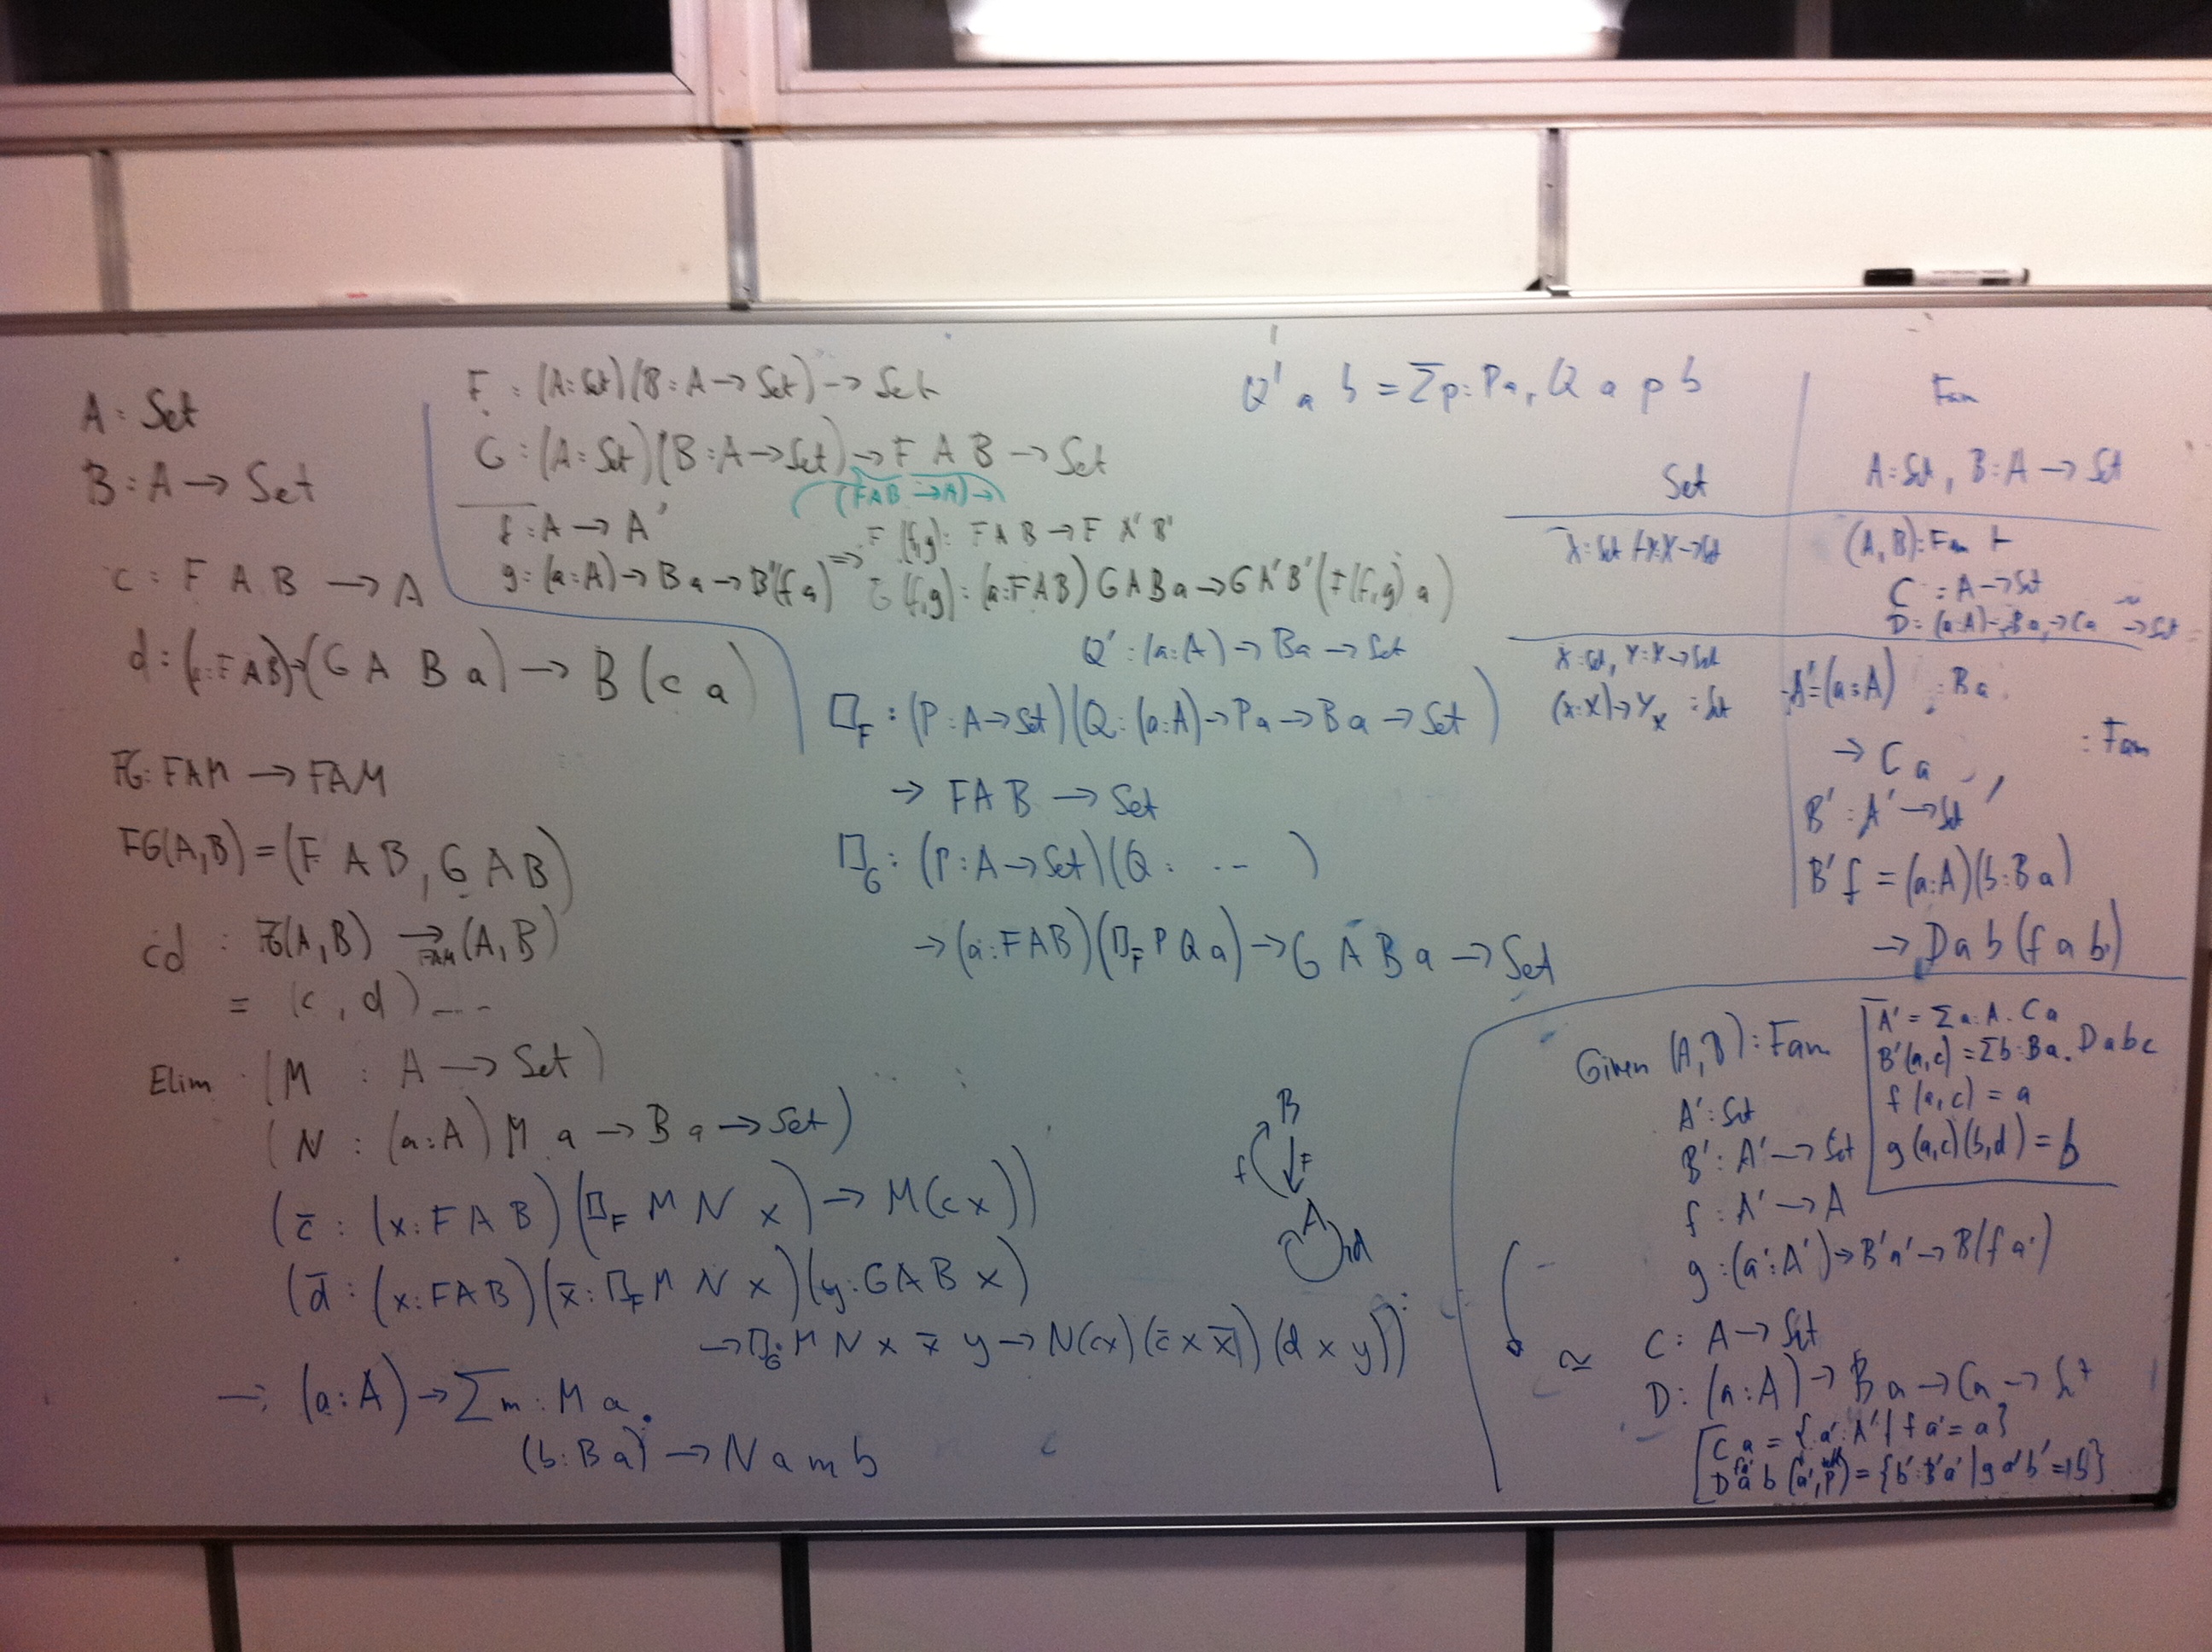 A : Set
B : A → Set
c : F A B → A
d : (a : F A B) → (G A B a) → B (c a)
FG : FAM → FAM
FG(A,B) = (F A B, G A B)
cd : FG(A,B) →FAM (A,B)
= (c, d) ...
Elim (M : A → Set)
(N : (a:A) M a → B a → Set)
(c̄ : (x : F A B) (□F M N x) → M(c x))
(d̄ : (x : FAB) (x̄ : □F M N x) (y : G A B x)
→ □G M N x x̄ y → N(cx) (c̄ x x̄) (d x y))
→ (a : A) → Σ m : M a.
(b : B a) → N a m b
F : (A : Set) (B : A → Set) → Set
G : (A : Set) (B : A → Set) → F A B → Set
(FAB → A) →
f : A → A'
g : (a:A) → B a → B'(f a)
⇒ F (f,g) : F A B → F A' B'
G (f,g) : (a : FAB) G A B a → G A' B' (F(f,g) a)
Q' a b = Σ p : P a, Q a p b
Q' : (a:A) → B a → Set
□F : (P : A → Set) (Q : (a:A) → P a → B a → Set)
→ F A B → Set
□G : (P : A → Set) (Q : ...)
→ (a : FAB) (□F P Q a) → G A B a → Set
B
f F
A
d
Set
X : Set ⊢ Y : X → Set
X : Set, Y : X → Set
(x:X) → Y x : Set
Fam
A : Set, B : A → Set
(A, B) : Fam ⊢
C : A → Set
D : (a:A) → B a → C a → Set
A' = (a : A) : B a
→ C a , : Fam
B' : A' → Set
B' f = (a:A)(b : B a)
→ D a b (f a b)
Given (A, B) : Fam
A' : Set
B' : A' → Set
f : A' → A
g : (a' : A') → B' a' → B(f a')
A' = Σ a : A. C a
B'(a,c) = Σ b : B a. D a b c
f (a,c) = a
g (a,c) (b,d) = b
≃ C : A → Set
D : (a : A) → B a → C a → Set
C a = {a' : A' | f a' = a}
D a b (a', p) = {b' : B' a' | g a' b' = b}